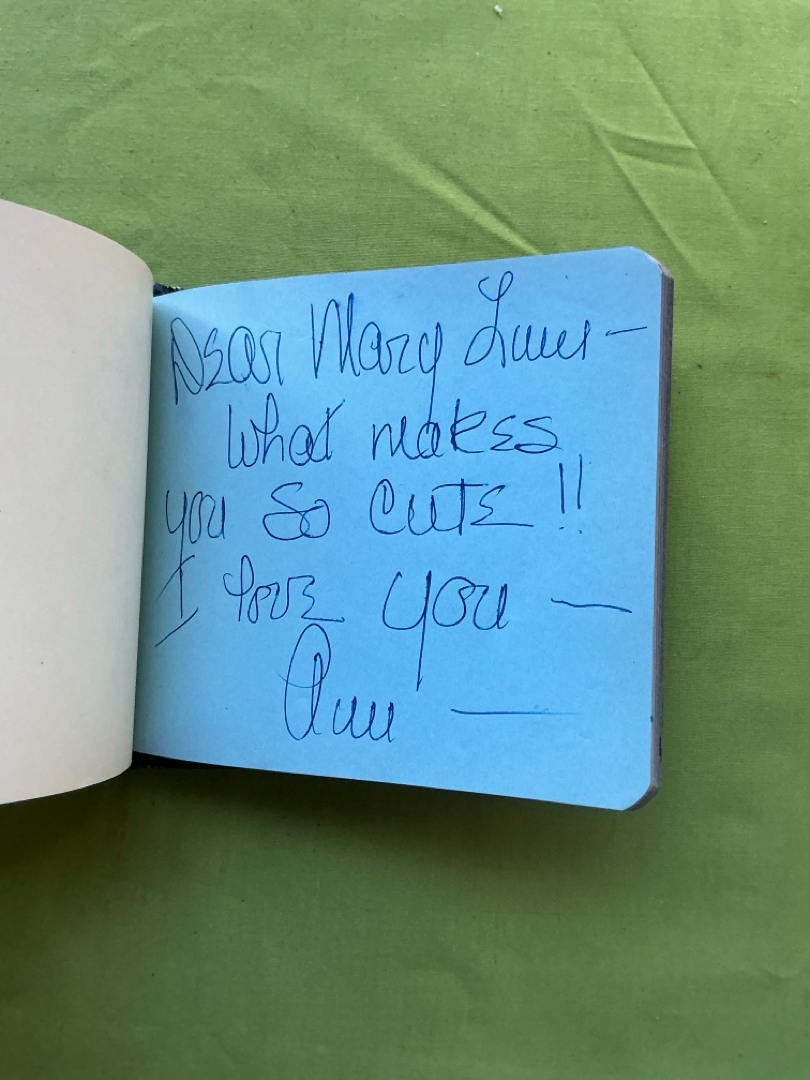 Dear Mary Lynn —
What makes
you so cute !!
I love you —
Ann —